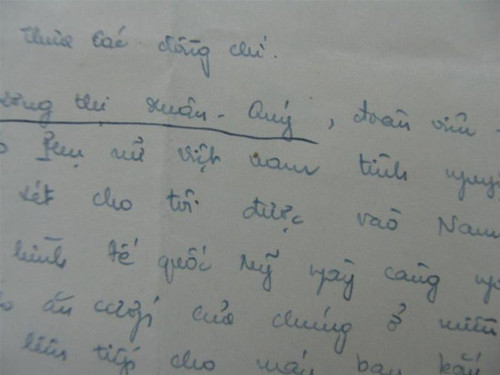 Thưa các đồng chí.
ương thị Xuân-Quý, đoàn viên
Phụ nữ Việt nam tình nguyệ
xét cho tôi được vào Nam
hình đế quốc Mỹ ngày càng ng
ăn cướp của chúng ở miền
liên tiếp cho máy bay bắn